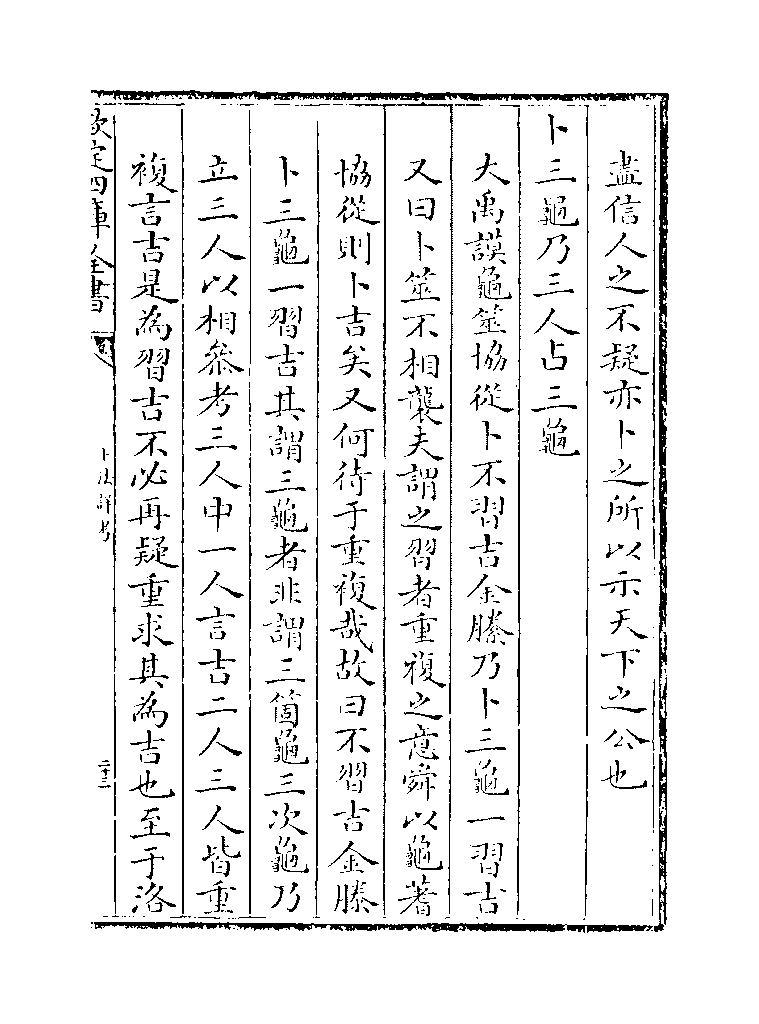 盡信人之不疑亦卜之所以示天下之公也
卜三龜乃三人占三龜
大禹謨龜筮協從卜不習吉金縢乃卜三龜一習吉
又曰卜筮不相襲夫謂之習者重複之意舜以龜蓍
協從則卜吉矣又何待于重複哉故曰不習吉金縢
卜三龜一習吉其謂三龜者非謂三箇龜三次龜乃
立三人以相叅考三人中一人言吉二人三人皆重
複言吉是為習吉不必再疑重求其為吉也至于洛
欽定四庫全書
卜法詳考
二十三